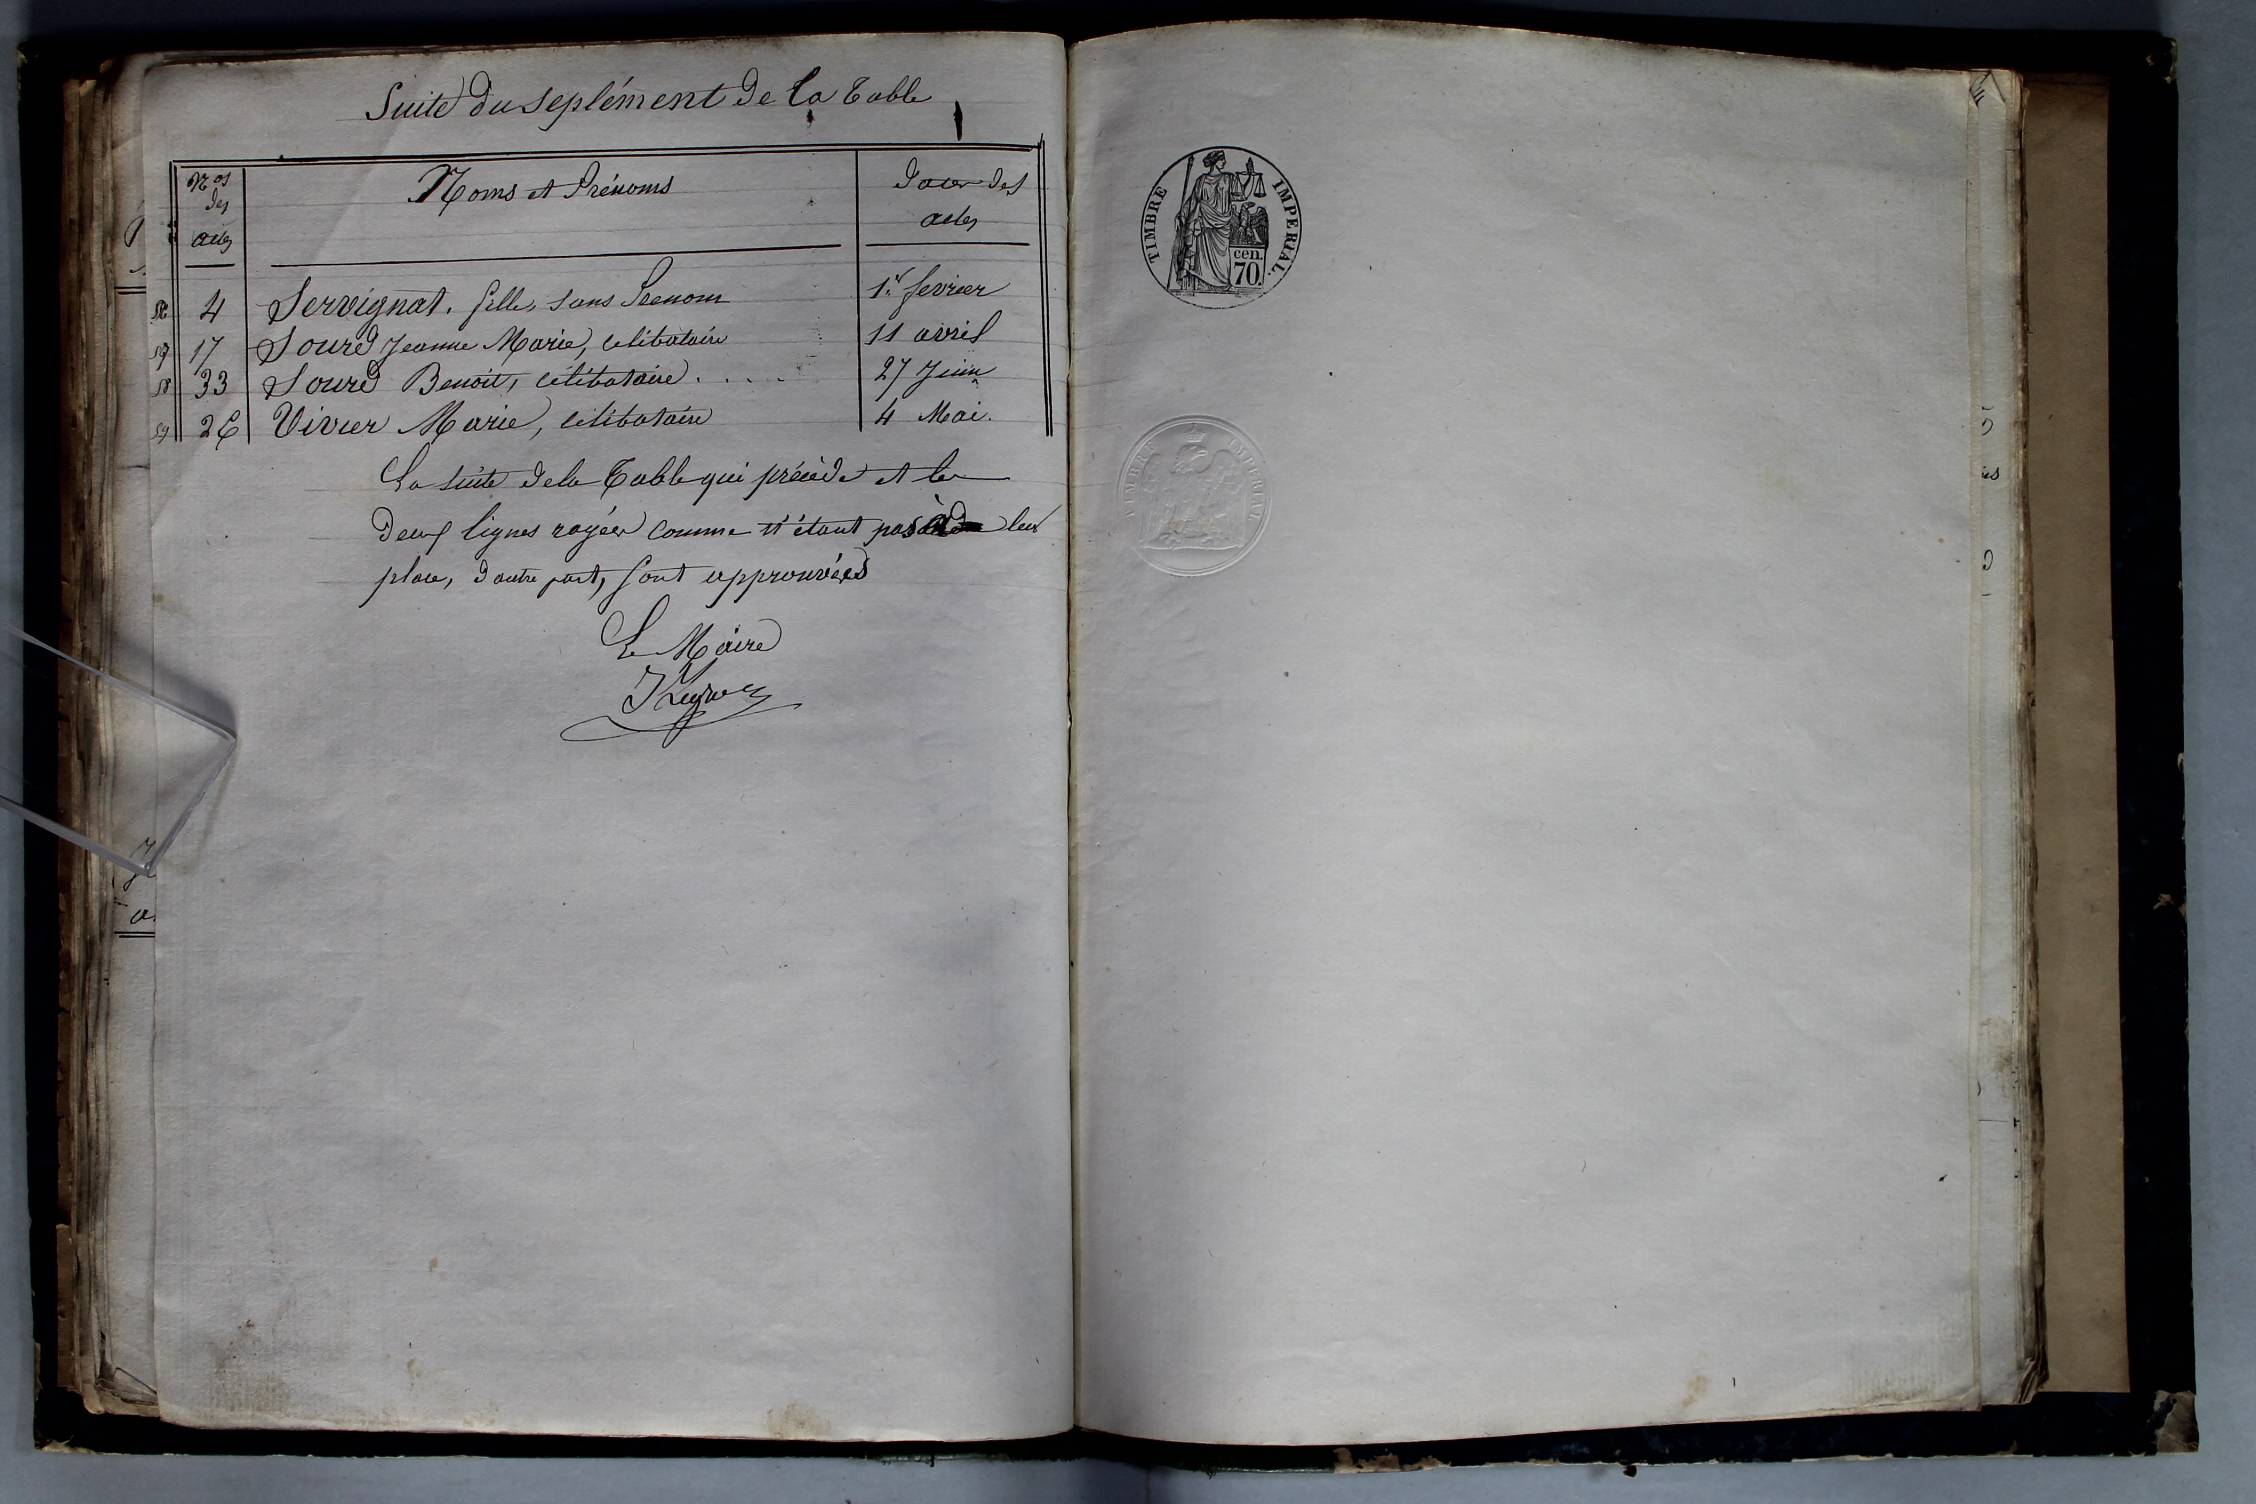 Suite du seplément de la Table
Nos des actes
Noms et Prénoms
Dates des actes
56 4 Servignat, fille, sans Prenom 1er fevrier
57 17 Sourd Jeanne Marie, celibataire 11 avril
58 33 Sourd Benoit, célibataire . . . . 27 Juin
59 26 Vivier Marie, célibataire 4 Mai.
La suite de la Table qui précède et les
deux lignes rayées comme n'étant pas à leur
place, d'autre part, sont approuvées
Le Maire
TIMBRE IMPERIAL.
cen.
70.
TIMBRE IMPERIAL